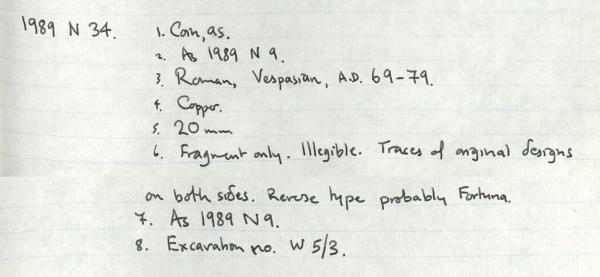 1989 N 34. 1. Coin, as.
2. As 1989 N 9.
3. Roman, Vespasian, A.D. 69-79.
4. Copper.
5. 20 mm
6. Fragment only. Illegible. Traces of original designs
on both sides. Reverse type probably Fortuna.
7. As 1989 N 9.
8. Excavation no. W 5/3.